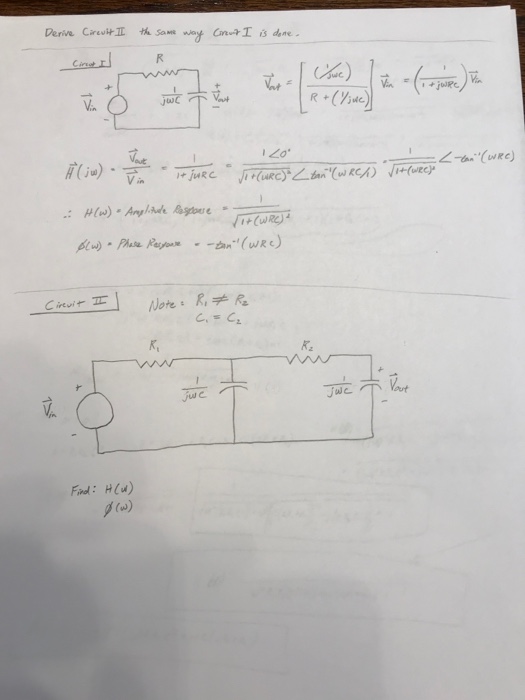 Derive Circuit II the same way Circuit I is done.
Circuit I
R
V⃗in + - 1/jωC + V⃗out -
V⃗out = [(1/jωC) / (R + (1/jωC))] V⃗in = (1 / (1+jωRC)) V⃗in
H⃗(jω) = V⃗out / V⃗in = 1 / (1+jωRC) = 1∠0° / (√(1+(ωRC)²) ∠tan⁻¹(ωRC/1)) = 1 / √(1+(ωRC)²) ∠-tan⁻¹(ωRC)
∴ H(ω) = Amplitude Response = 1 / √(1+(ωRC)²)
ϕ(ω) = Phase Response = -tan⁻¹(ωRC)
Circuit II
Note: R₁ ≠ R₂
C₁ = C₂
R₁ R₂
V⃗in + - 1/jωC 1/jωC + V⃗out -
Find: H(ω)
ϕ(ω)